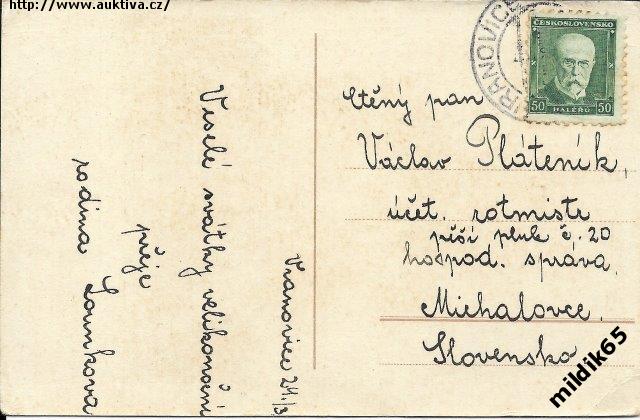 http://www.auktiva.cz/
Veselé svátky velikonoční
přeje
rodina
Vranovice 24./3
VRANOVICE
ČESKOSLOVENSKO
50 HALÉŘŮ 50
Ctěný pan
Václav Pláteník,
účet. rotmistr
pěší pluk č. 20
hospod. správa
Michalovce.
Slovensko
mildik65